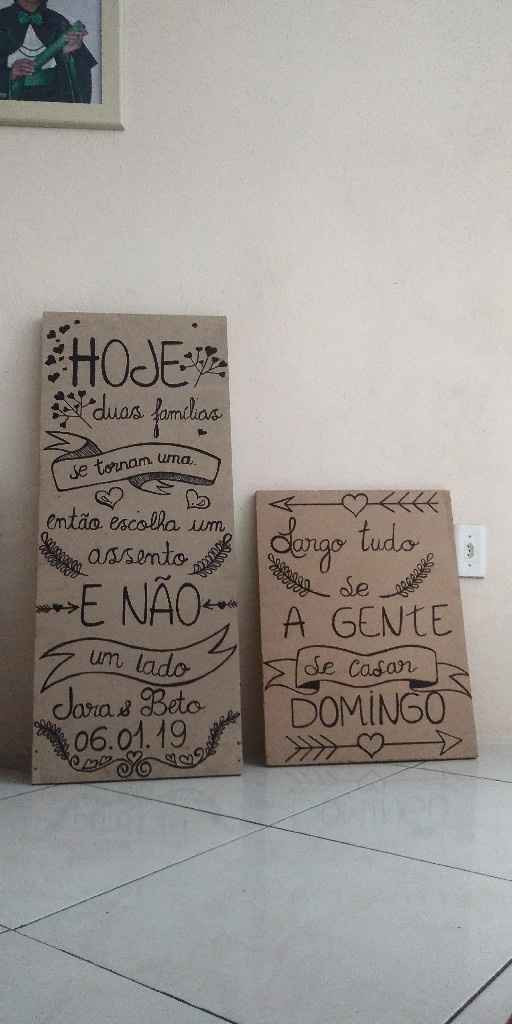 HOJE
duas famílias
se tornam uma.
então escolha um
assento
E NÃO
um lado
Iara & Beto
06.01.19
Largo tudo
se
A GENTE
se casar
DOMINGO